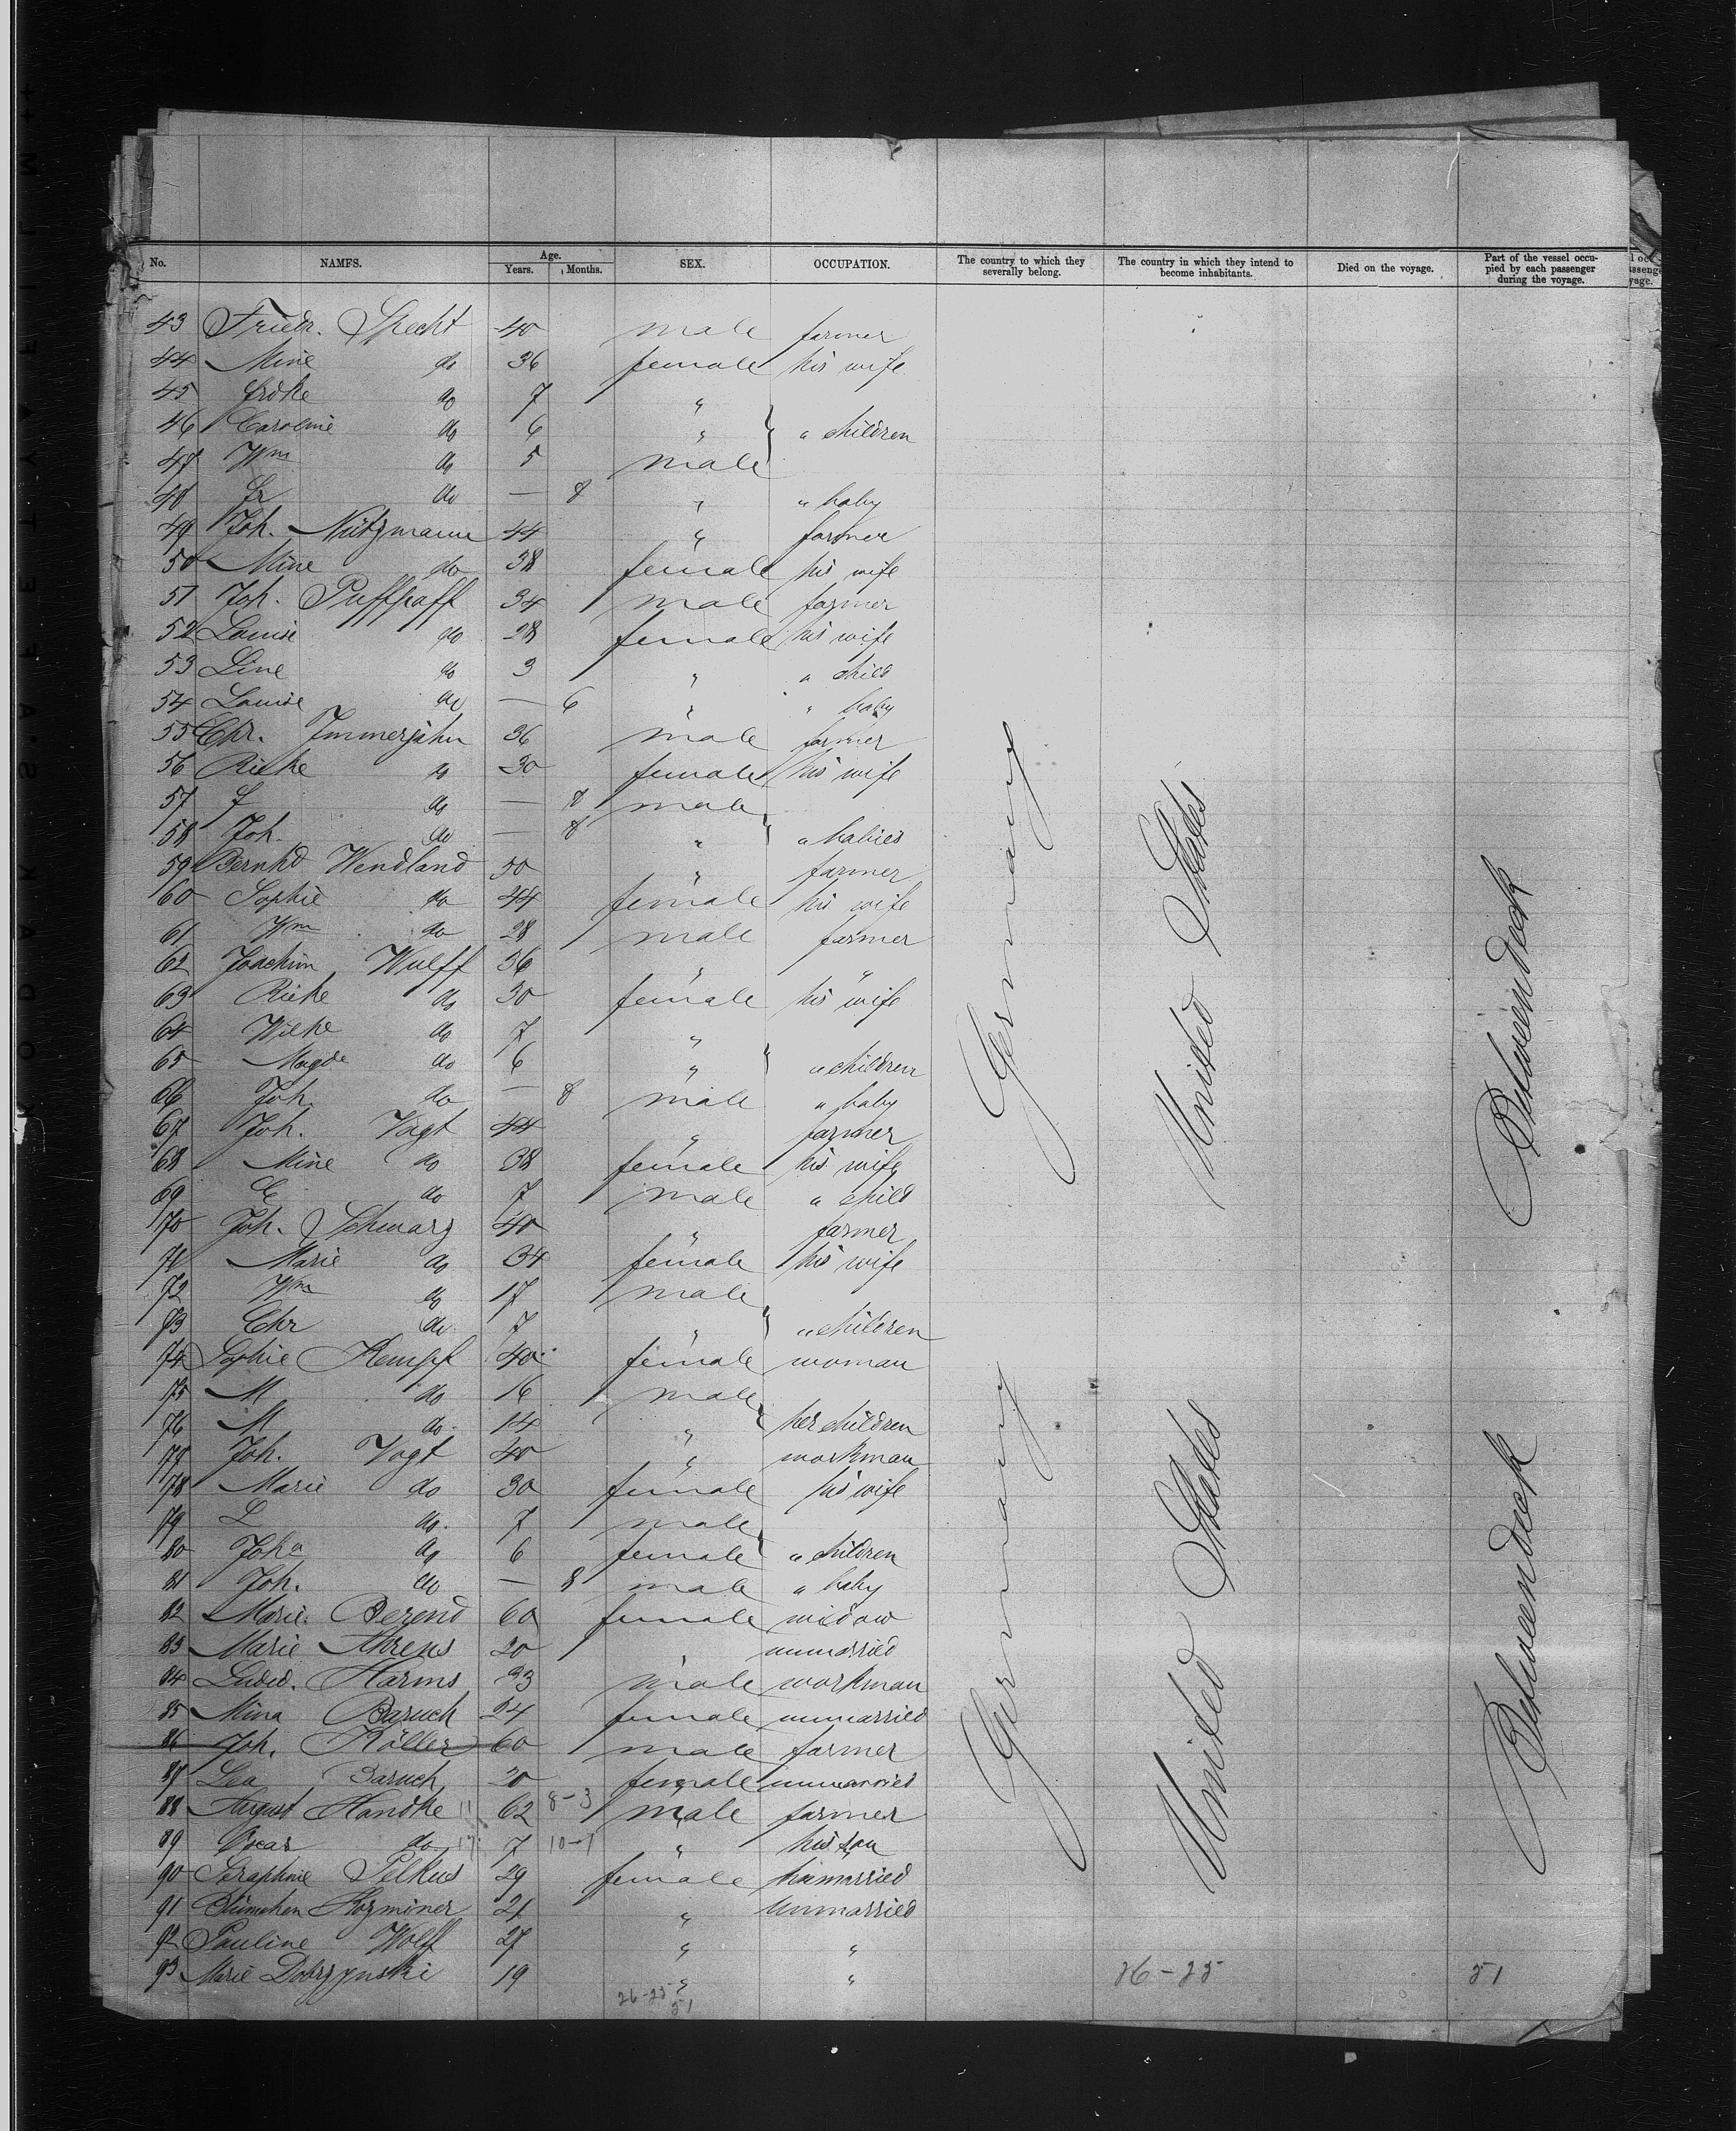 No. NAMES. Age. Years. Months. SEX. OCCUPATION. The country to which they severally belong. The country in which they intend to become inhabitants. Died on the voyage. Part of the vessel occupied by each passenger during the voyage.
43 Friedr. Specht 40 male farmer
44 Mine do 36 female his wife
45 Frdke do 7 "
46 Caroline do 6 " " children
47 Wm do 5 male
48 Fr do — 8 " " baby
49 Joh. Nützmann 44 " farmer
50 Mine do 38 female his wife
51 Joh. Puffpaff 34 male farmer
52 Louise do 28 female his wife
53 Line do 3 " " child
54 Louise do — 6 " " baby
55 Chr. Immerjahn 36 male farmer
56 Rieke do 30 female his wife
57 do — 8 male
58 Joh. do — 8 " " babies
59 Bernhd Wendland 50 " farmer
60 Sophie do 44 female his wife
61 Wm do 28 male farmer
62 Joachim Wulff 36 " "
63 Rieke do 30 female his wife
64 Wilke do 7 "
65 Magde do 6 " " children
66 Joh. do — 8 male " baby
67 Joh. Vogt 44 " farmer
68 Mine do 38 female his wife
69 do 7 male " child
70 Joh. Schwarz 40 " farmer
71 Marie do 34 female his wife
72 Wm do 17 male
73 Chr do 7 " " children
74 Sophie Kempf 40 female woman
75 M do 16 male
76 M do. 14 " her children
77 Joh. Vogt 40 " workman
78 Marie do 30 female his wife
79 L do. 7 male
80 Joha do 6 female " children
81 Joh. do — 8 male " baby
82 Marie Berend 60 female widow
83 Marie Ahrens 20 " unmarried
84 Ludw. Harms 33 male workman
85 Mina Baruch 24 female unmarried
86 Joh. Köller 60 male farmer
87 Lea Baruch 20 female unmarried
88 August Handke 11 62 8-3 male farmer
89 Oscar do 7 10-1 " his son
90 Seraphine Pelkus 29 female unmarried
91 Blümchen Kozminer 21 " unmarried
92 Pauline Wolff 27 " "
93 Marie Dobrzynski 19 " "
26-25
51
Germany
United States
Betweendeck
Germany
United States
Betweendeck
26-25
51